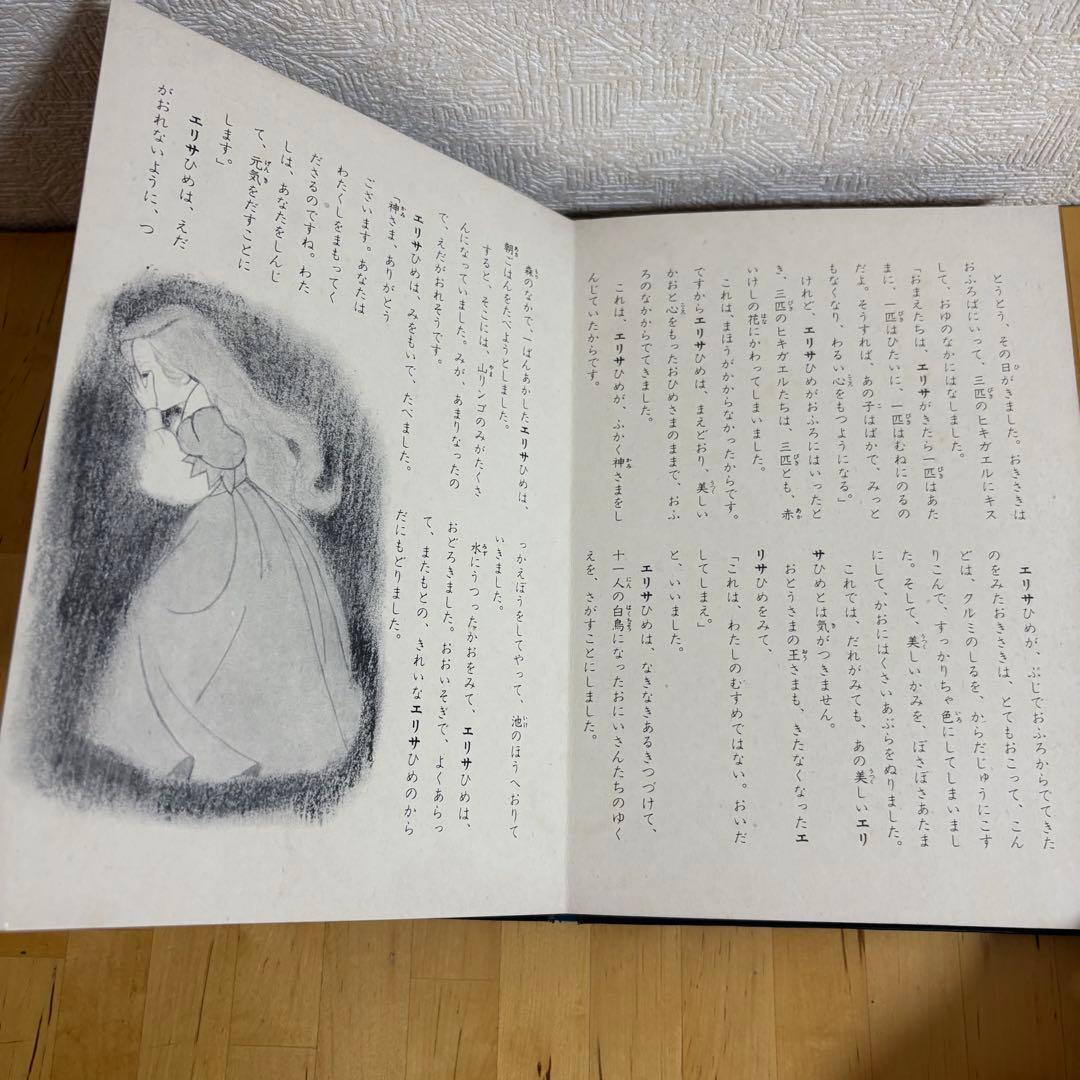 とうとう、その日がきました。おきさきは
おふろばにいって、三匹のヒキガエルにキス
して、おゆのなかにはなしました。
「おまえたちは、エリサがきたら一匹はあた
まに、一匹はひたいに、一匹はむねにのるの
だよ。そうすれば、あの子はばかで、みっと
もなくなり、わるい心をもつようになる」
けれど、エリサひめがおふろにはいったと
き、三匹のヒキガエルたちは、三匹とも、赤
いけしの花にかわってしまいました。
これは、まほうがかからなかったからです。
ですからエリサひめは、まえどおり、美しい
かおと心をもったおひめさまのままで、おふ
ろのなかからでてきました。
これは、エリサひめが、ふかく神さまをし
んじていたからです。
エリサひめが、ぶじでおふろからでてきた
のをみたおきさきは、とてもおこって、こん
どは、クルミのしるを、からだじゅうにこす
りこんで、すっかりちゃ色にしてしまいまし
た。そして、美しいかみを、ぼさぼさあたま
にして、かおにはくさいあぶらをぬりました。
これでは、だれがみても、あの美しいエリ
サひめとは気がつきません。
おとうさまの王さまも、きたなくなったエ
リサひめをみて、
「これは、わたしのむすめではない。おいだ
してしまえ」
と、いいました。
エリサひめは、なきなきあるきつづけて、
十一人の白鳥になったおにいさんたちのゆく
えを、さがすことにしました。
森のなかで、一ばんあかしたエリサひめは、
朝ごはんをたべようとしました。
すると、そこには、山リンゴのみがたくさ
んになっていました。みが、あまりなったの
で、えだがおれそうです。
エリサひめは、みをもいで、たべました。
「神さま、ありがとう
ございます。あなたは
わたくしをまもってく
ださるのですね。わた
しは、あなたをしんじ
て、元気をだすことに
します。」
エリサひめは、えだ
がおれないように、つ
っかえぼうをしてやって、池のほうへおりて
いきました。
水にうつったかおをみて、エリサひめは、
おどろきました。おおいそぎで、よくあらっ
て、またもとの、きれいなエリサひめのから
だにもどりました。